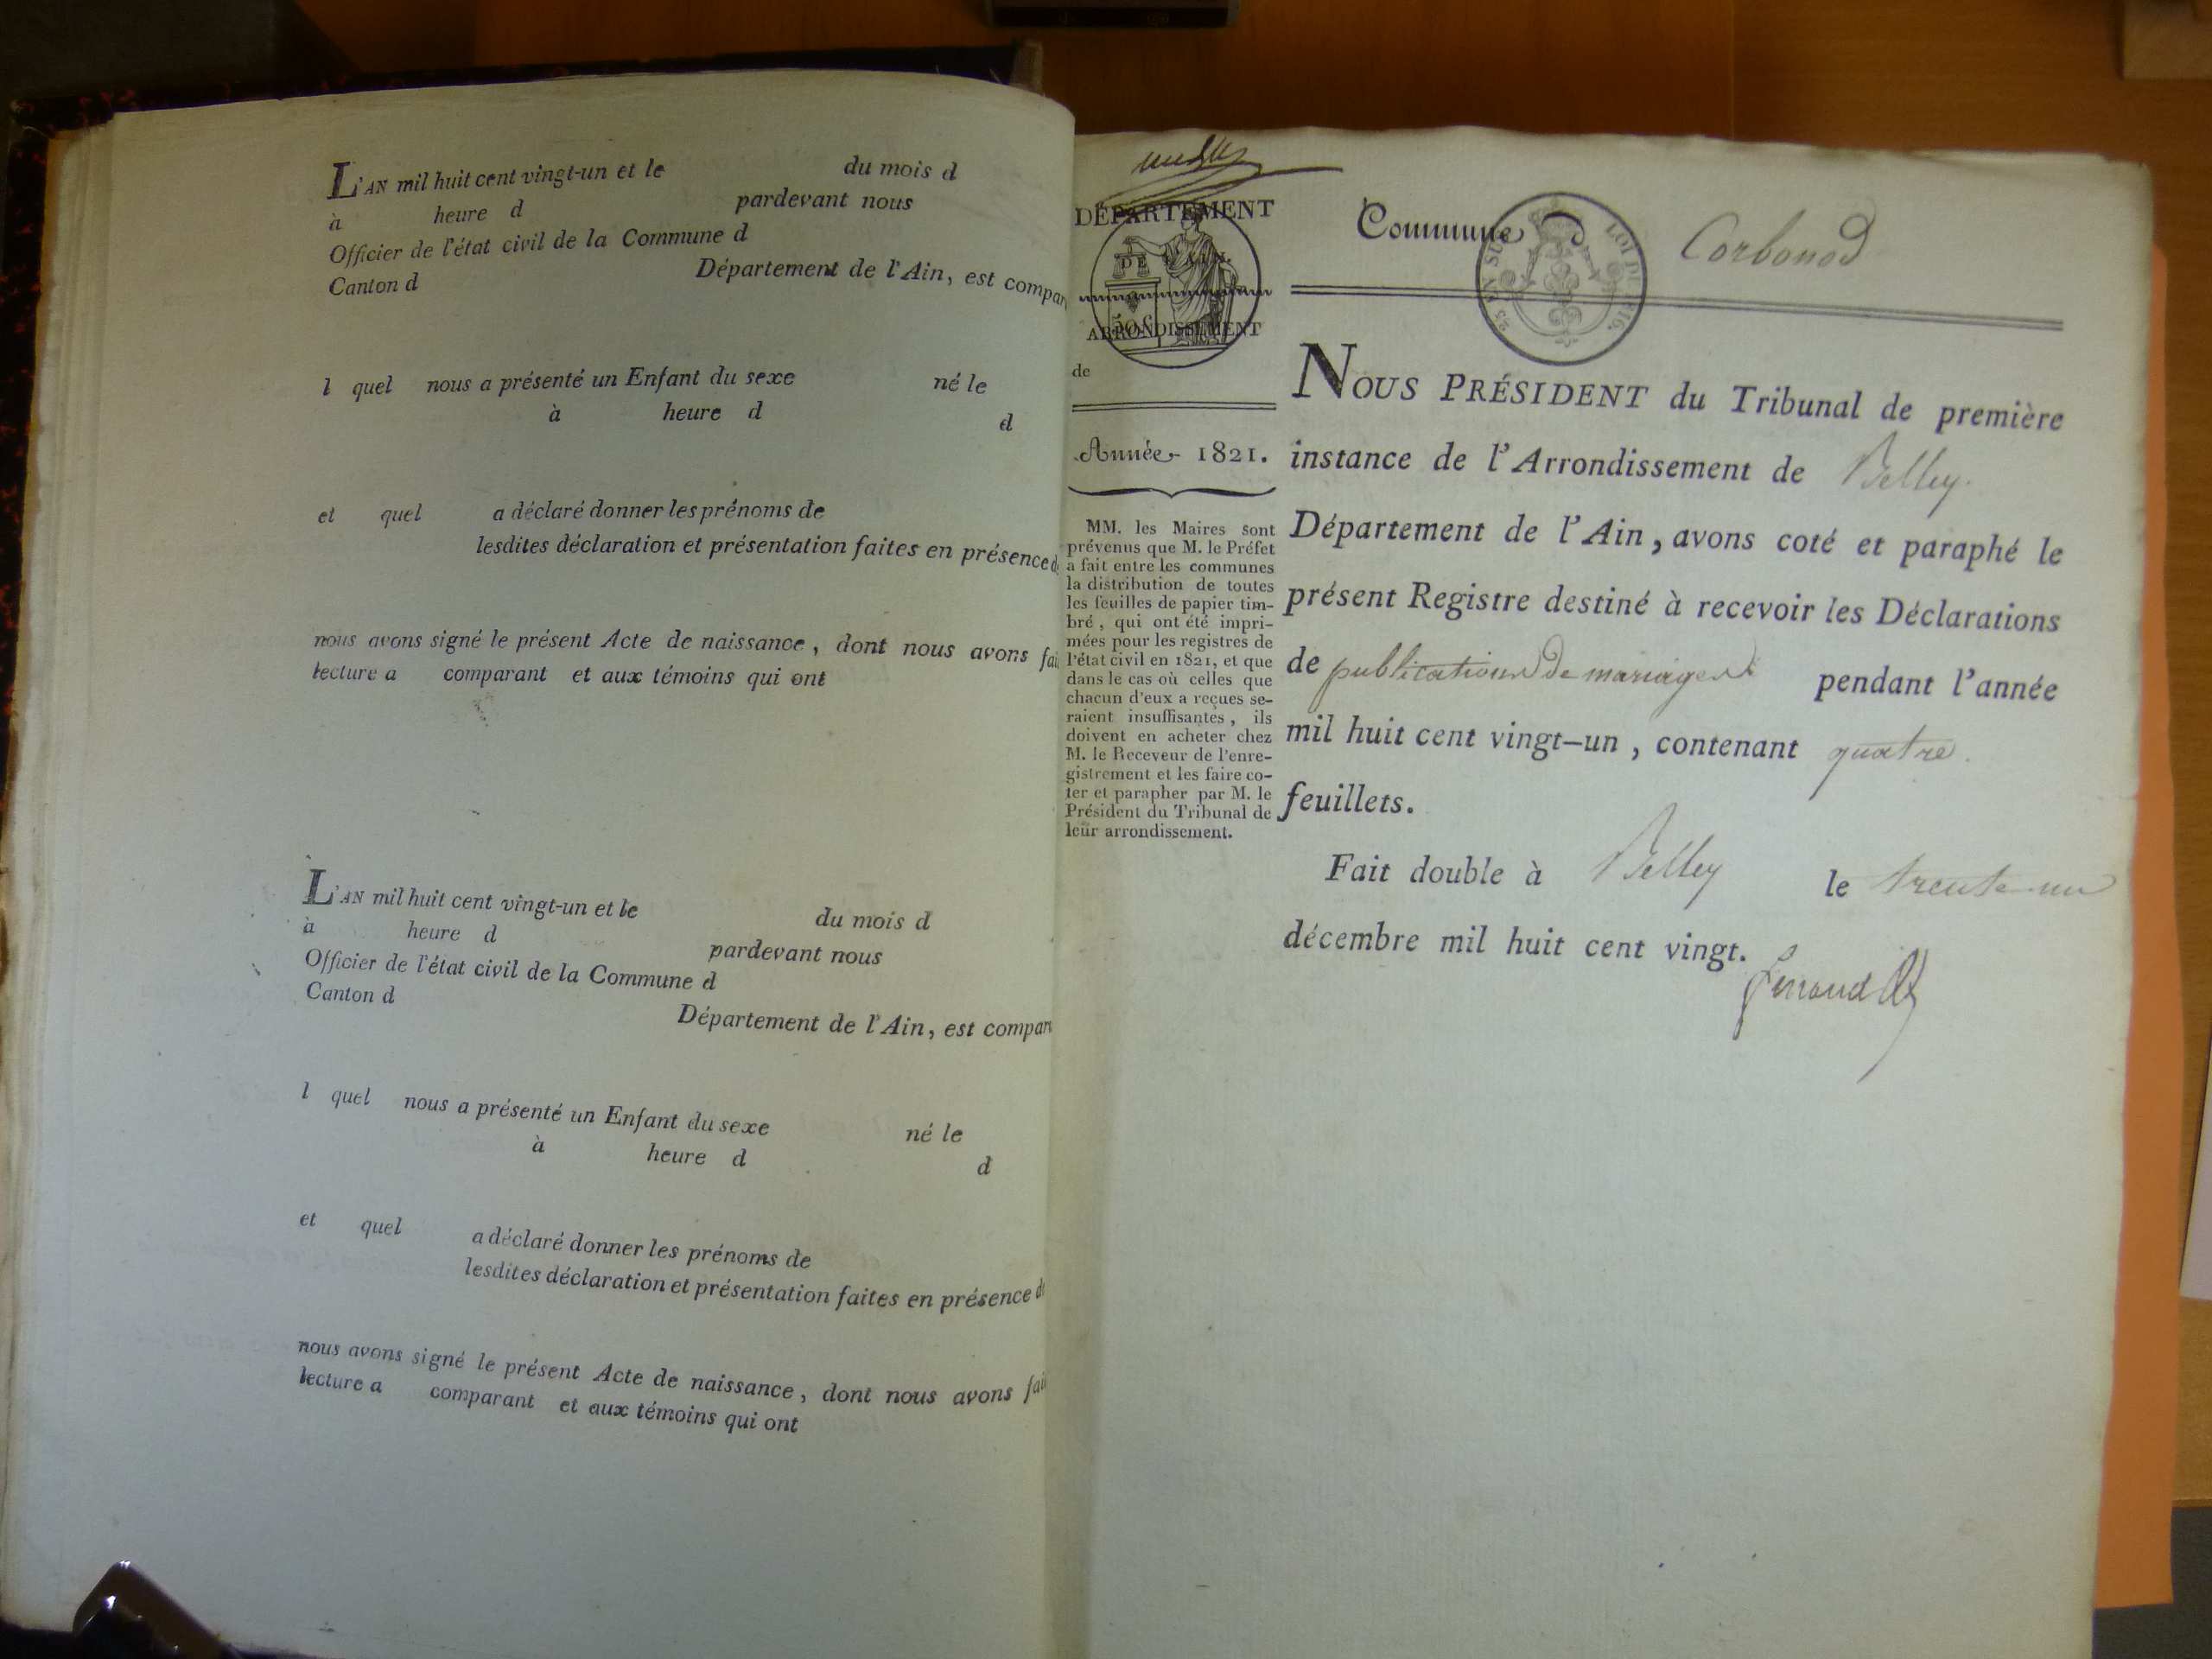 L'AN mil huit cent vingt-un et le du mois d
à heure d pardevant nous
Officier de l'état civil de la Commune d
Canton d Département de l'Ain, est compar
l quel nous a présenté un Enfant du sexe né le
à heure d d
et quel a déclaré donner les prénoms de
lesdites déclaration et présentation faites en présence d
nous avons signé le présent Acte de naissance, dont nous avons fai
lecture a comparant et aux témoins qui ont
L'AN mil huit cent vingt-un et le du mois d
à heure d pardevant nous
Officier de l'état civil de la Commune d
Canton d Département de l'Ain, est compar
l quel nous a présenté un Enfant du sexe né le
à heure d d
et quel a déclaré donner les prénoms de
lesdites déclaration et présentation faites en présence d
nous avons signé le présent Acte de naissance, dont nous avons fai
lecture a comparant et aux témoins qui ont
DÉPARTEMENT
DE L'AIN.
50 c
ARRONDISSEMENT
de
Année 1821.
MM. les Maires sont
prévenus que M. le Préfet
a fait entre les communes
la distribution de toutes
les feuilles de papier tim-
bré, qui ont été impri-
mées pour les registres de
l'état civil en 1821, et que
dans le cas où celles que
chacun d'eux a reçues se-
raient insuffisantes, ils
doivent en acheter chez
M. le Receveur de l'enre-
gistrement et les faire co-
ter et parapher par M. le
Président du Tribunal de
leur arrondissement.
Commune d Corbonod
NOUS PRÉSIDENT du Tribunal de première
instance de l'Arrondissement de Belley.
Département de l'Ain, avons coté et paraphé le
présent Registre destiné à recevoir les Déclarations
de publications de mariages pendant l'année
mil huit cent vingt-un, contenant quatre.
feuillets.
Fait double à Belley le trente-un
décembre mil huit cent vingt.